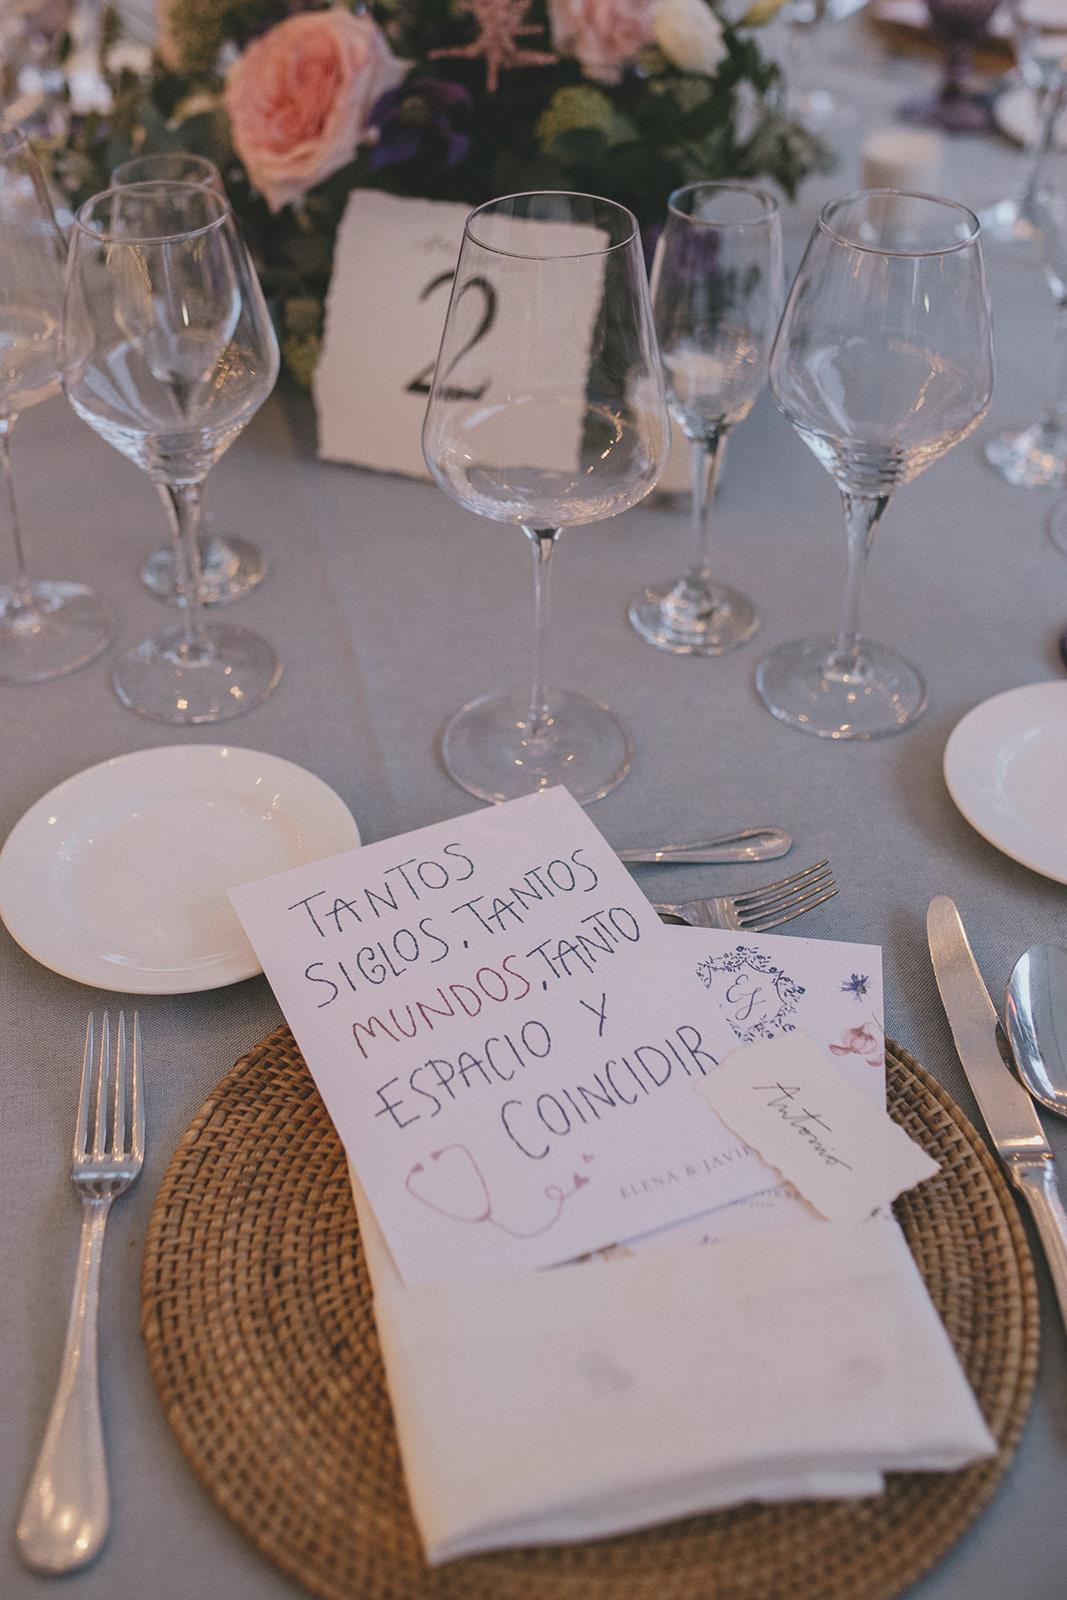 2
TANTOS
SIGLOS, TANTOS
MUNDOS, TANTO
ESPACIO Y
COINCIDIR
EJ
Antonio
ELENA & JAVIE